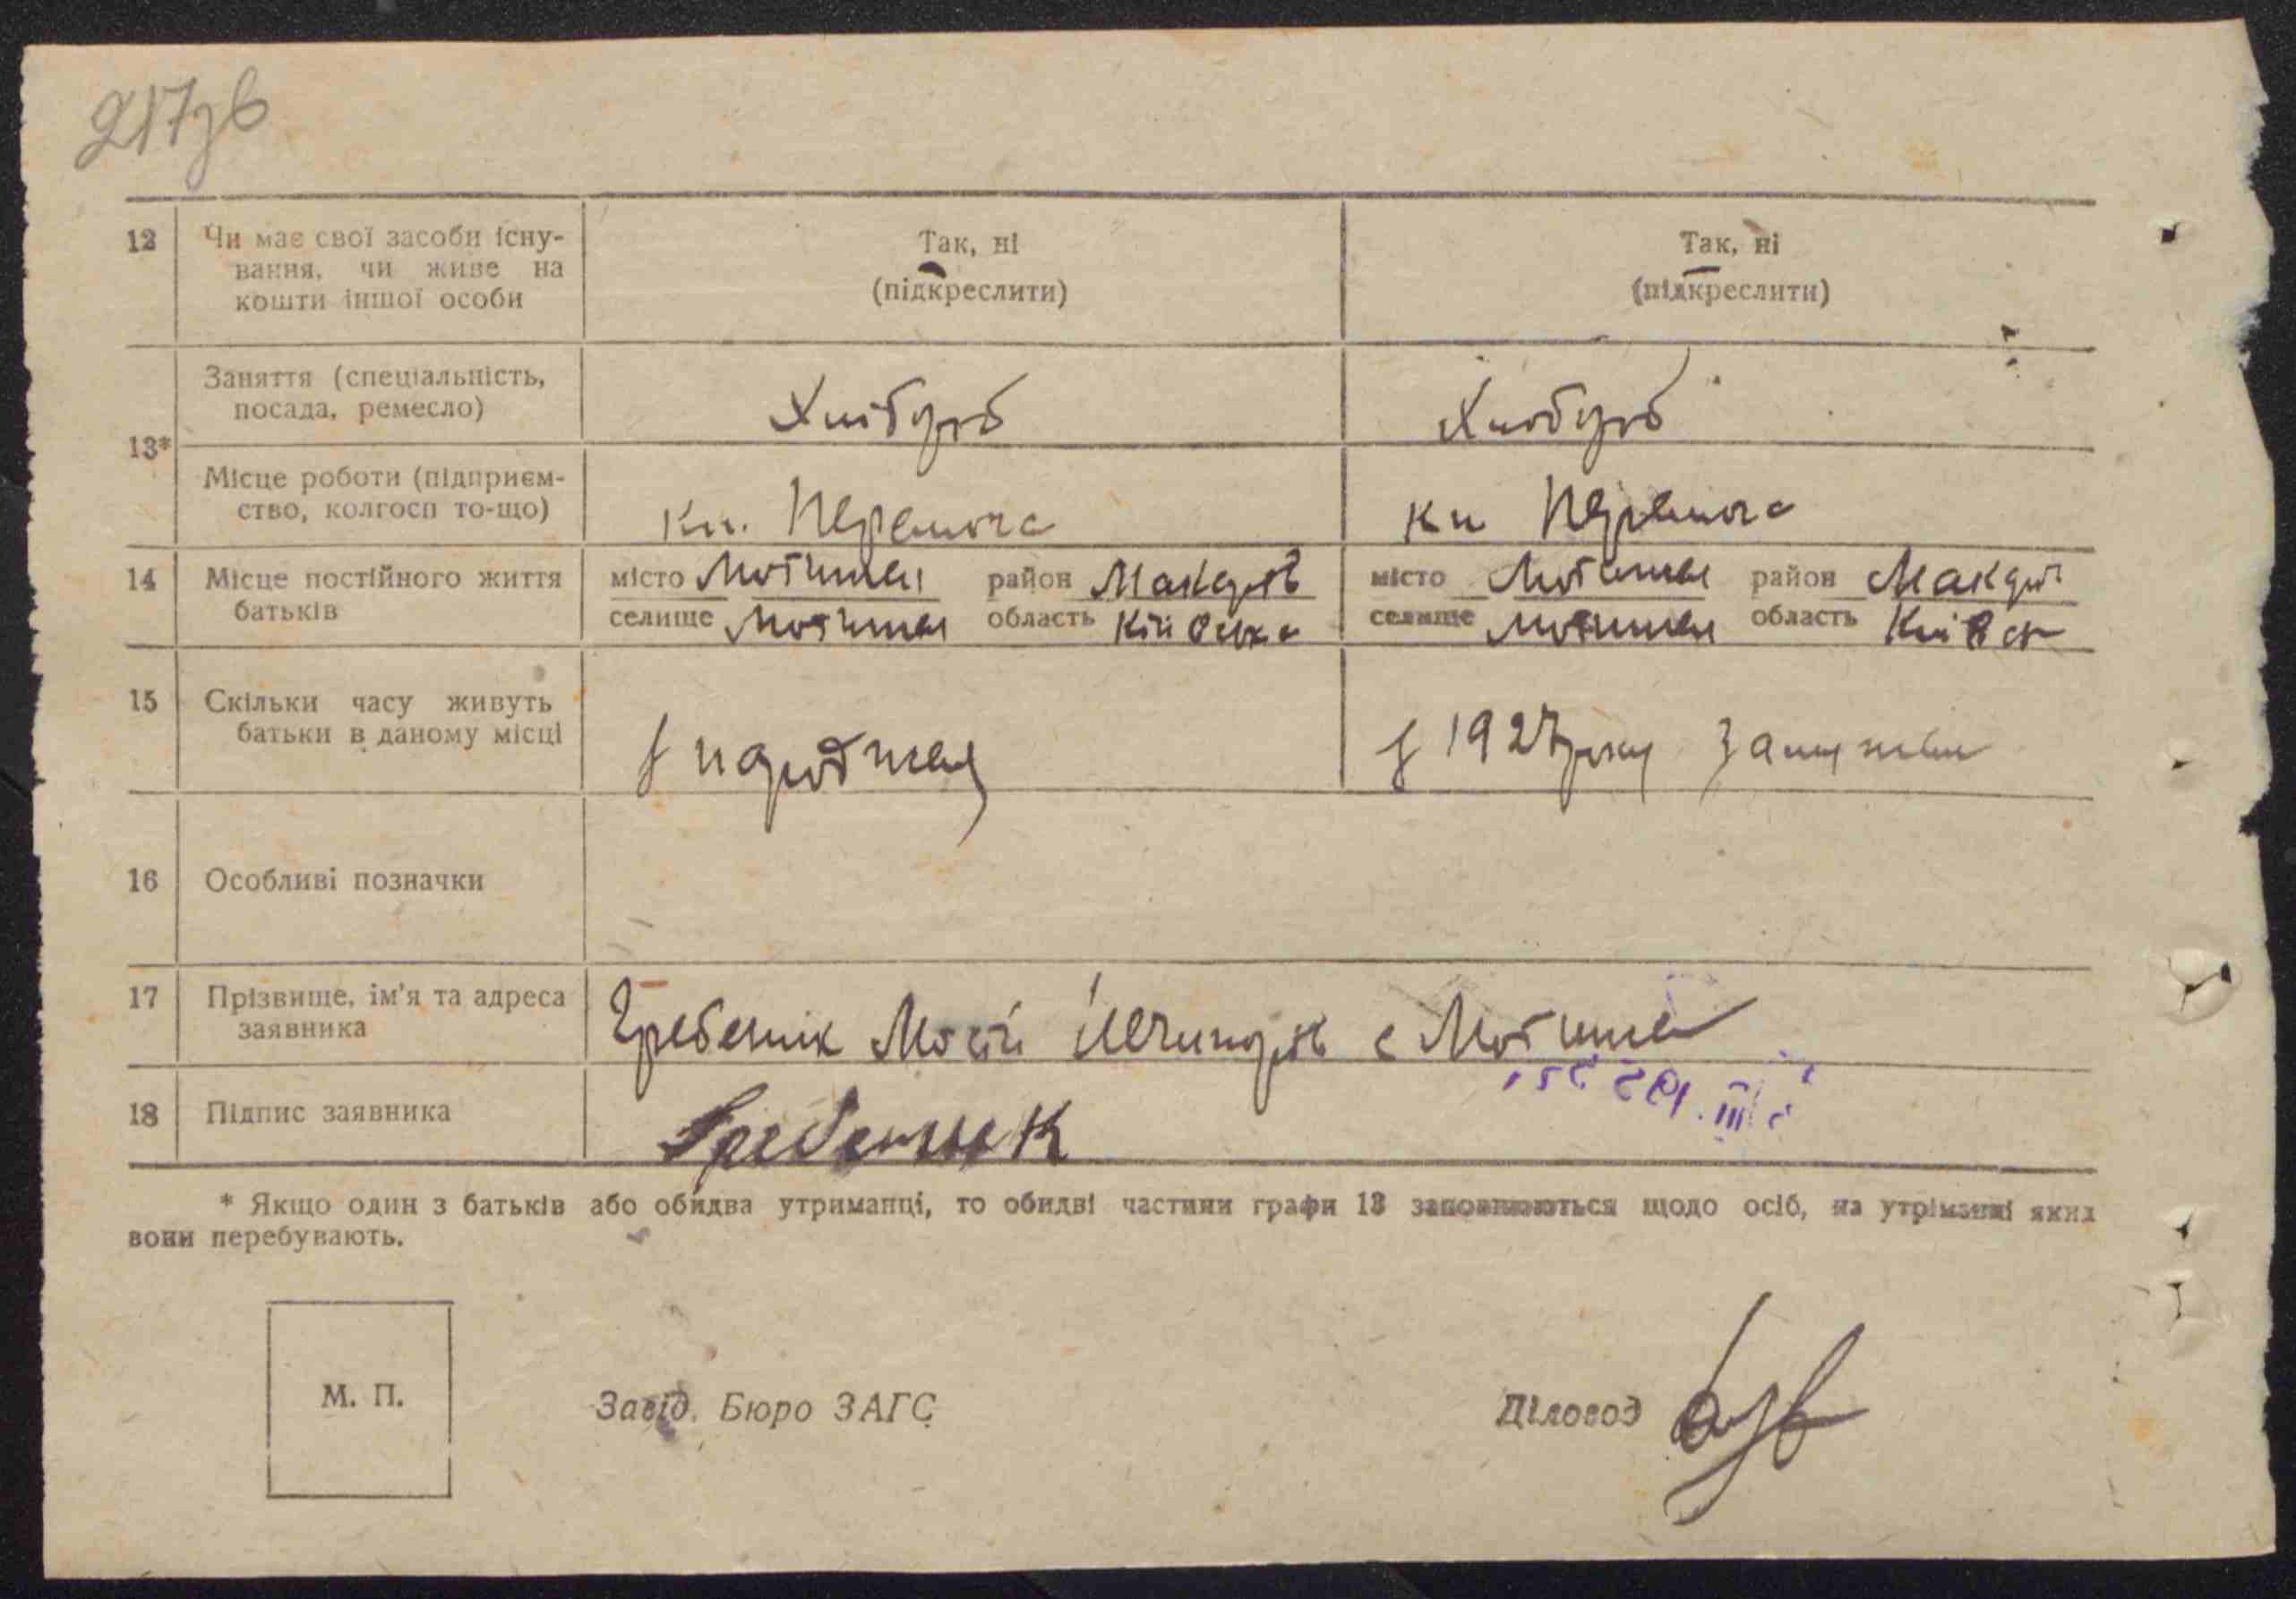 217зв
12 Чи має свої засоби існу- Так, ні Так, ні
вання, чи живе на (підкреслити) (підкреслити)
кошти іншої особи
Заняття (спеціальність, Хлібороб Хлібороб
посада, ремесло)
13*
Місце роботи (підприєм- кл. Перемога кл Перемога
ство, колгосп то-що)
14 Місце постійного життя місто Мотижин район Макарів місто Мотижин район Макарів
батьків селище Мотижин область Київська селище Мотижин область Київськ
15 Скільки часу живуть з народження з 1927 року замужем
батьки в даному місці
16 Особливі позначки
17 Прізвище, ім'я та адреса Гребеник Мосій с Мотижин
заявника
18 Підпис заявника Гребеник
* Якщо один з батьків або обидва утриманці, то обидві частини графи 13 заповнюються щодо осіб, на утріманні яких
вони перебувають.
М. П. Завід. Бюро ЗАГС Діловод